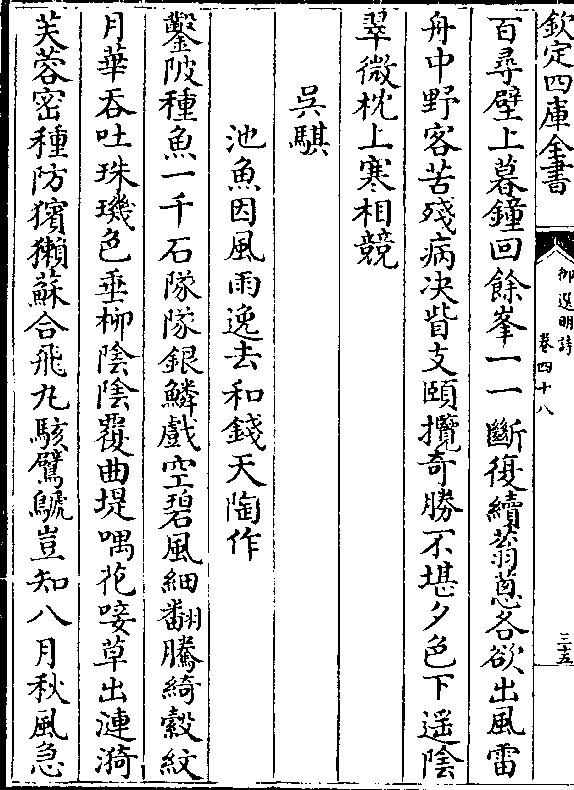 欽定四庫全書
御選明詩
卷四十八
三十五
百尋壁上暮鐘回餘峯一一斷復續蓊蔥各欲出風雷
舟中野客苦殘病决眥支頤攬奇勝不堪夕色下遥陰
翠微枕上寒相競
吳騏
池魚因風雨逸去和錢天陶作
鑿陂種魚一千石隊隊銀鱗戲空碧風細翻騰綺縠紋
月華吞吐珠璣色垂柳陰陰覆曲堤喁花唼草出漣漪
芙蓉密種防獱獺蘇合飛丸駭鸊鷉豈知八月秋風急